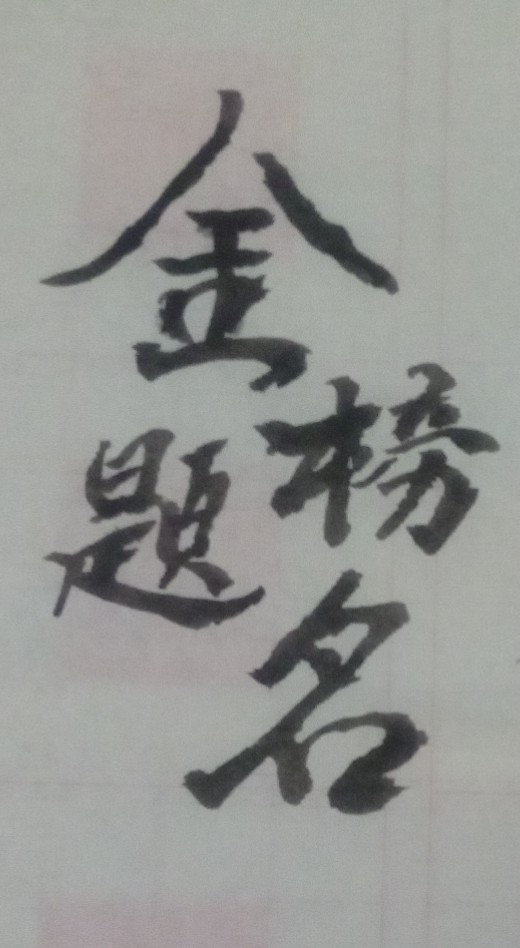 金榜题名